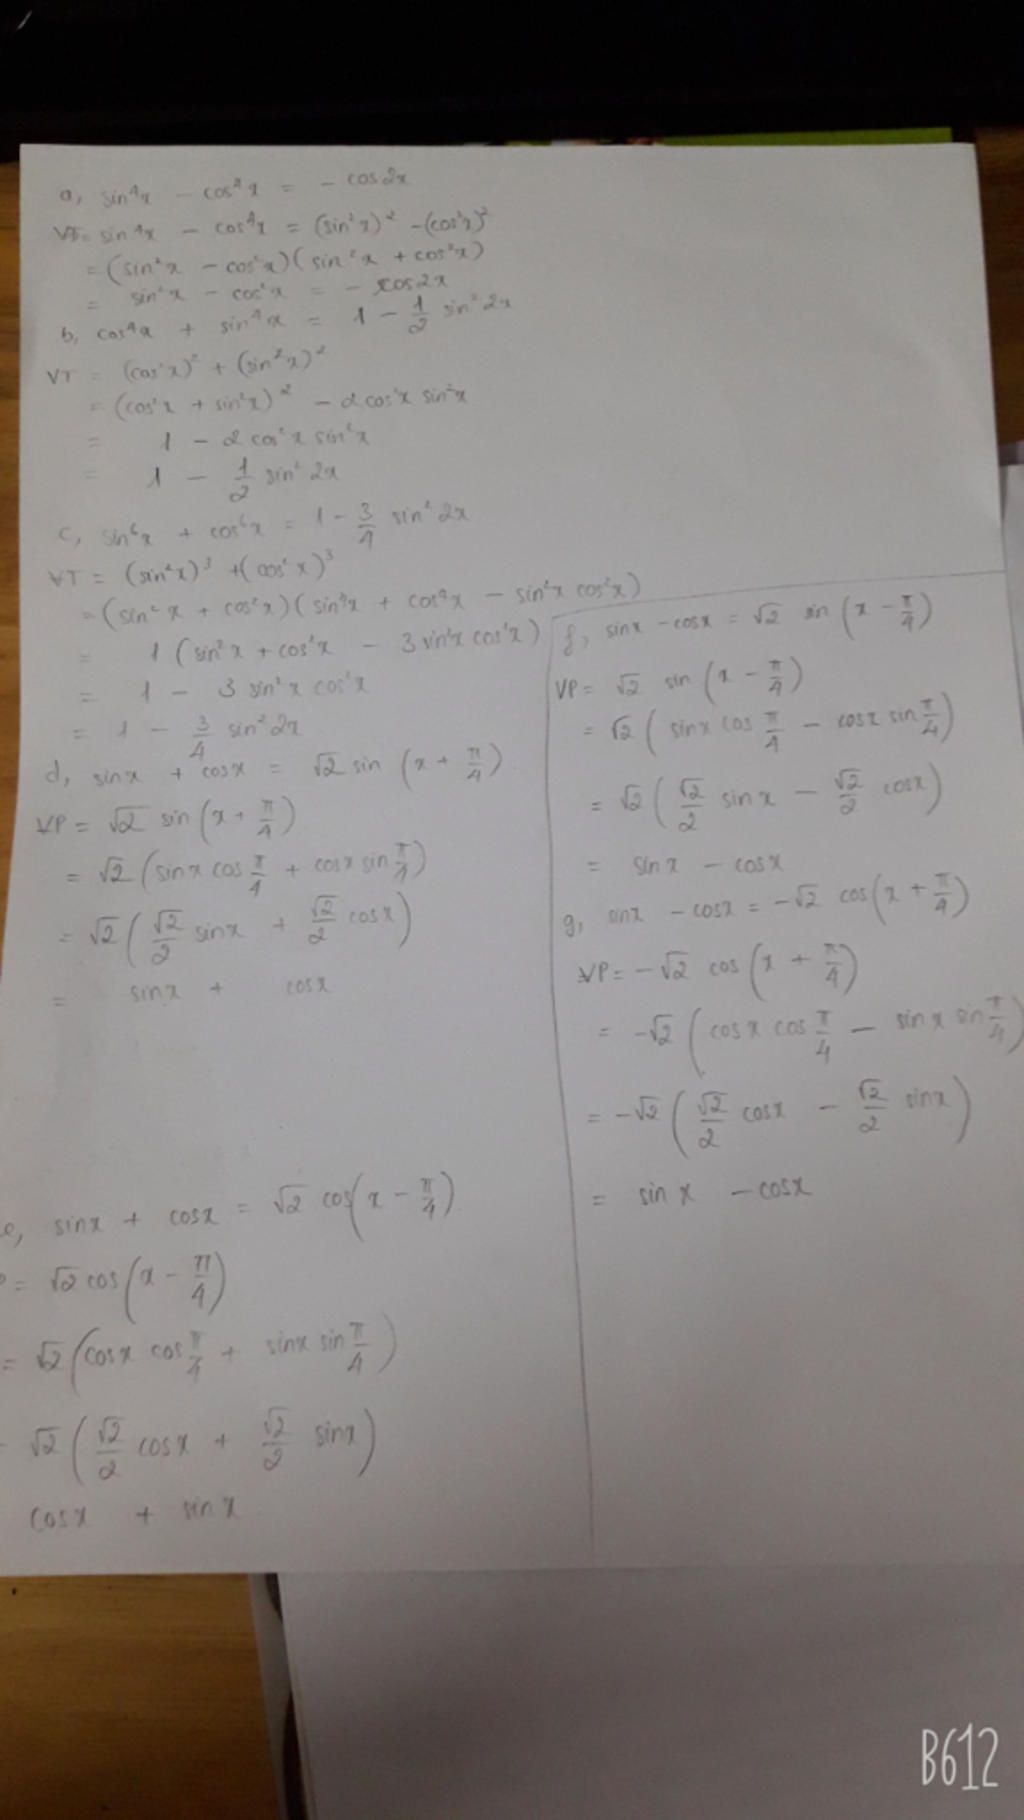 a, sin⁴x - cos⁴x = - cos2x
VT = sin⁴x - cos⁴x = (sin²x)² - (cos²x)²
= (sin²x - cos²x)(sin²x + cos²x)
= sin²x - cos²x = - cos2x
b, cos⁴x + sin⁴x = 1 - 1/2 sin²2x
VT = (cos²x)² + (sin²x)²
= (cos²x + sin²x)² - 2cos²x sin²x
= 1 - 2cos²x sin²x
= 1 - 1/2 sin²2x
c, sin⁶x + cos⁶x = 1 - 3/4 sin²2x
VT = (sin²x)³ + (cos²x)³
= (sin²x + cos²x)(sin⁴x + cos⁴x - sin²x cos²x)
= 1 (sin²x + cos²x - 3 sin²x cos²x)
= 1 - 3 sin²x cos²x
= 1 - 3/4 sin²2x
d, sinx + cosx = √2 sin (x + π/4)
VP = √2 sin (x + π/4)
= √2 (sinx cos π/4 + cosx sin π/4)
= √2 (√2/2 sinx + √2/2 cosx)
= sinx + cosx
e, sinx + cosx = √2 cos(x - π/4)
= √2 cos (x - π/4)
= √2 (cosx cos π/4 + sinx sin π/4)
√2 (√2/2 cosx + √2/2 sinx)
cosx + sinx
f, sinx - cosx = √2 sin (x - π/4)
VP = √2 sin (x - π/4)
= √2 (sinx cos π/4 - cosx sin π/4)
= √2 (√2/2 sinx - √2/2 cosx)
= sinx - cosx
g, sinx - cosx = -√2 cos(x + π/4)
VP = -√2 cos (x + π/4)
= -√2 (cosx cos π/4 - sinx sin π/4)
= -√2 (√2/2 cosx - √2/2 sinx)
= sinx - cosx
B612